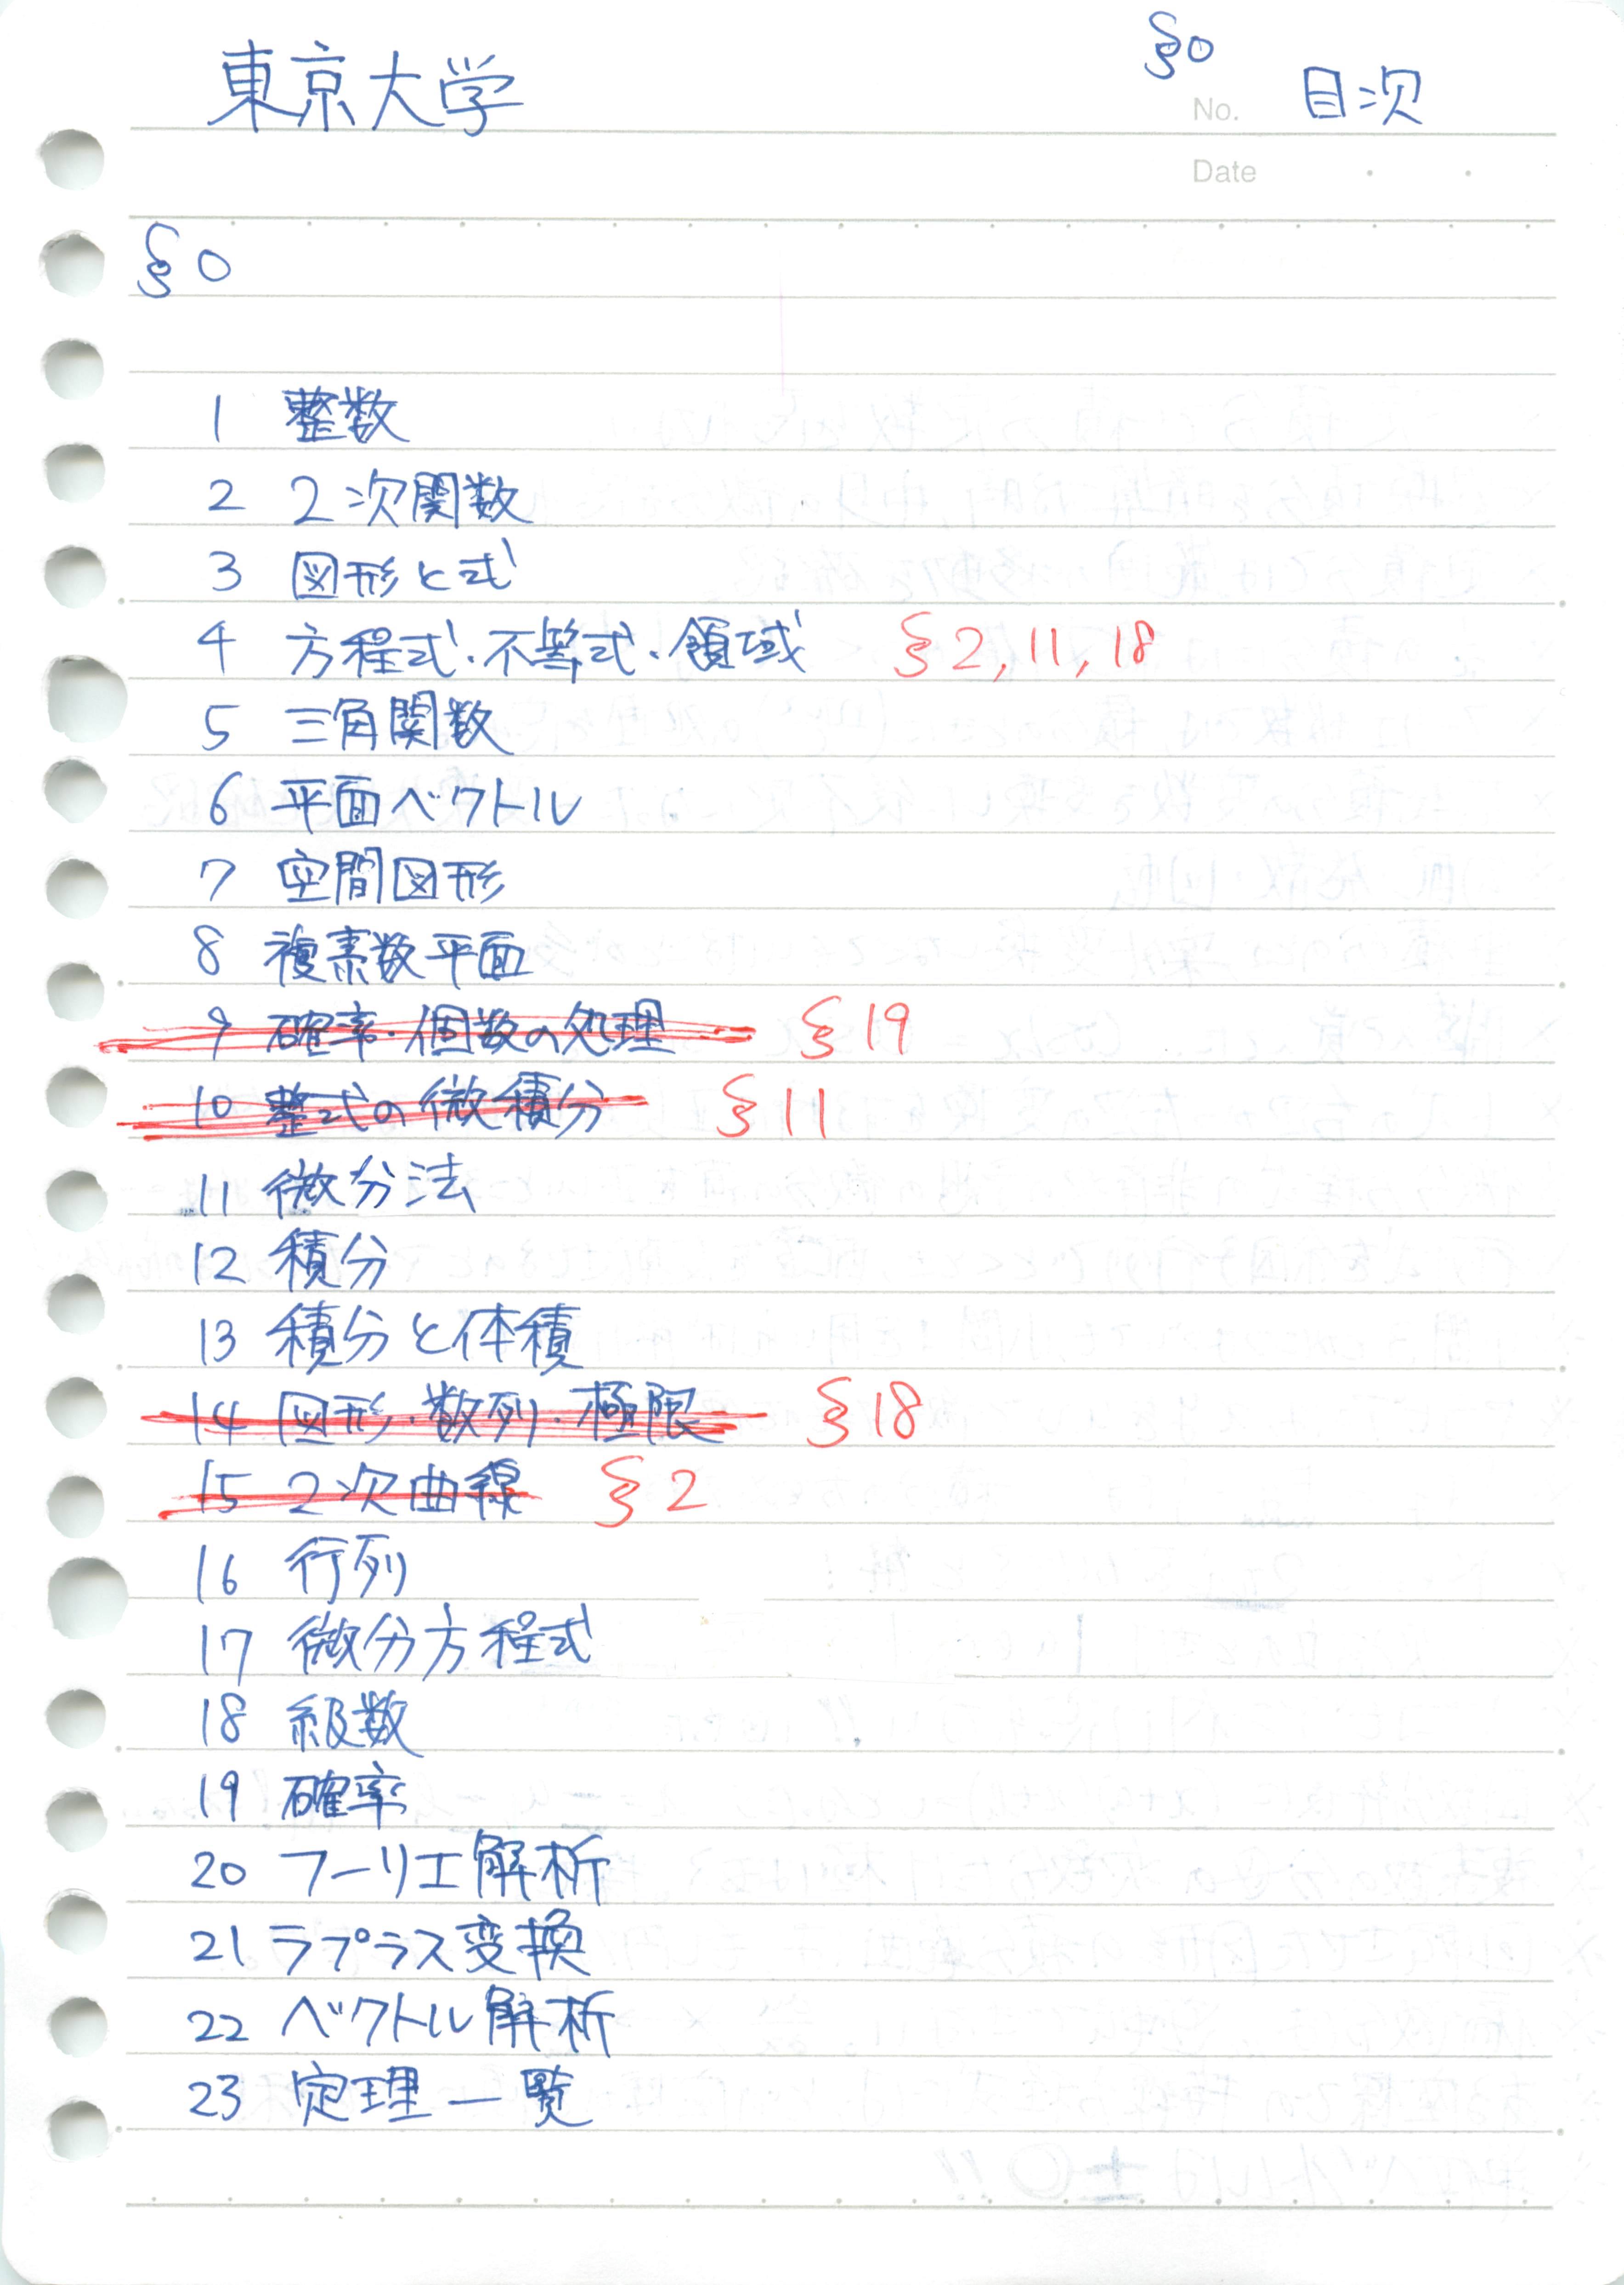 東京大学
§0
No. 目次
Date
§0
1 整数
2 2次関数
3 図形と式
4 方程式・不等式・領域 §2, 11, 18
5 三角関数
6 平面ベクトル
7 空間図形
8 複素数平面
9 確率・個数の処理 §19
10 整式の微積分 §11
11 微分法
12 積分
13 積分と体積
14 図形・数列・極限 §18
15 2次曲線 §2
16 行列
17 微分方程式
18 級数
19 確率
20 フーリエ解析
21 ラプラス変換
22 ベクトル解析
23 定理一覧